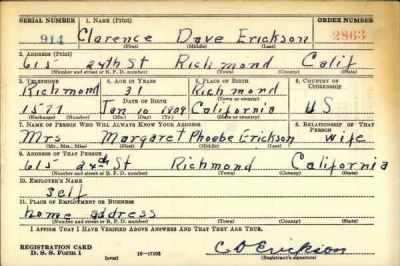 SERIAL NUMBER 1. NAME (Print) ORDER NUMBER
914 Clarence Dave Erickson 2863
(First) (Middle) (Last)
2. ADDRESS (Print)
615 24th St Richmond Calif
(Number and street or R. F. D. number) (Town) (County) (State)
3. TELEPHONE 4. AGE IN YEARS 5. PLACE OF BIRTH 6. COUNTRY OF CITIZENSHIP
Richmond 31 Richmond
DATE OF BIRTH (Town or county)
1577 Jan 10 1909 California U S
(Exchange) (Number) (Mo.) (Day) (Yr.) (State or country)
7. NAME OF PERSON WHO WILL ALWAYS KNOW YOUR ADDRESS 8. RELATIONSHIP OF THAT PERSON
Mrs Margaret Phoebe Erickson wife
(Mr., Mrs., Miss) (First) (Middle) (Last)
9. ADDRESS OF THAT PERSON
615 24th St Richmond California
(Number and street or R. F. D. number) (Town) (County) (State)
10. EMPLOYER'S NAME
Self
11. PLACE OF EMPLOYMENT OR BUSINESS
home address
(Number and street or R. F. D. number) (Town) (County) (State)
I AFFIRM THAT I HAVE VERIFIED ABOVE ANSWERS AND THAT THEY ARE TRUE.
REGISTRATION CARD
D. S. S. Form 1 (over) 16-17105 C D Erickson
(Registrant's signature)